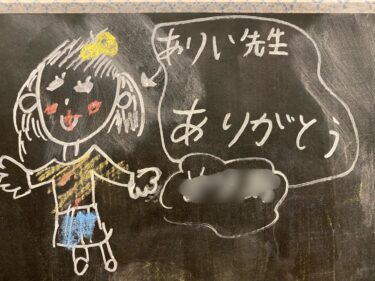 ありい先生
ありがとう